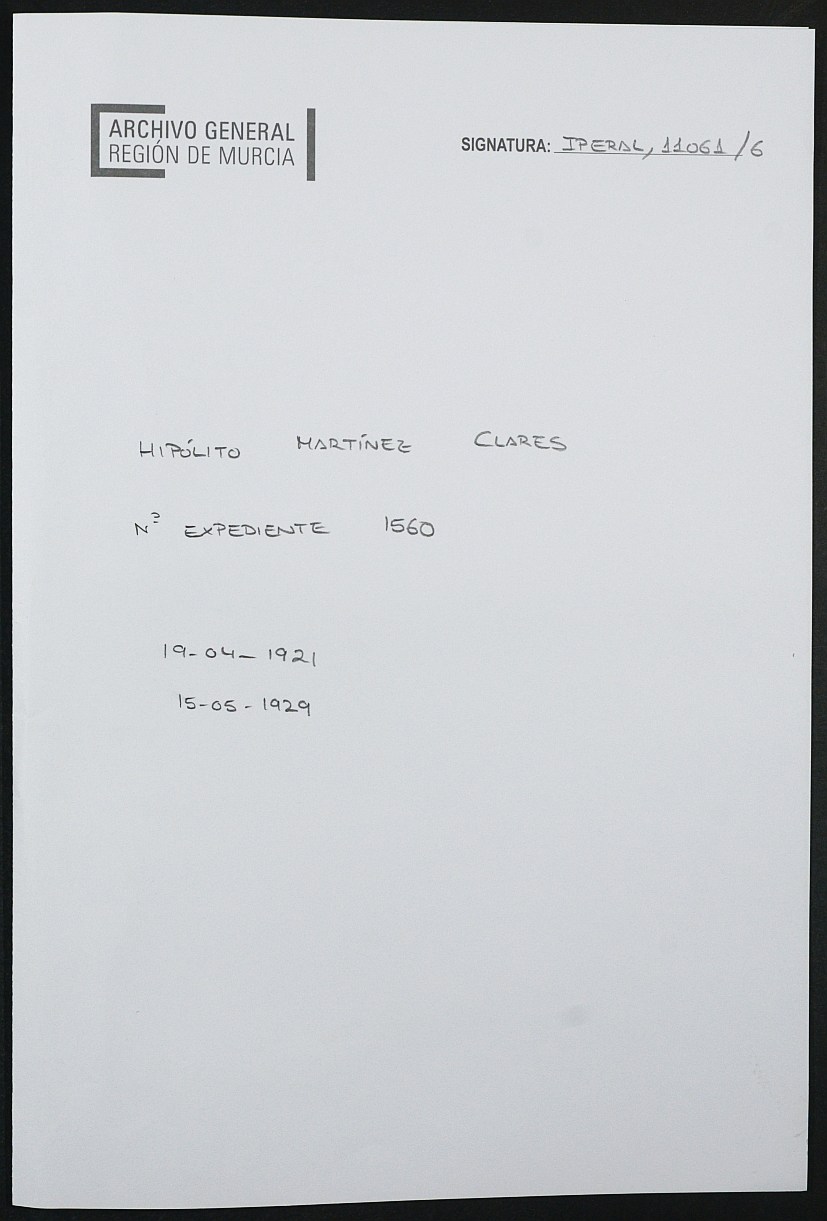 ARCHIVO GENERAL
REGIÓN DE MURCIA
SIGNATURA: IPERAL, 11061/6
HIPÓLITO MARTÍNEZ CLARES
Nº EXPEDIENTE 1560
19-04-1921
15-05-1929